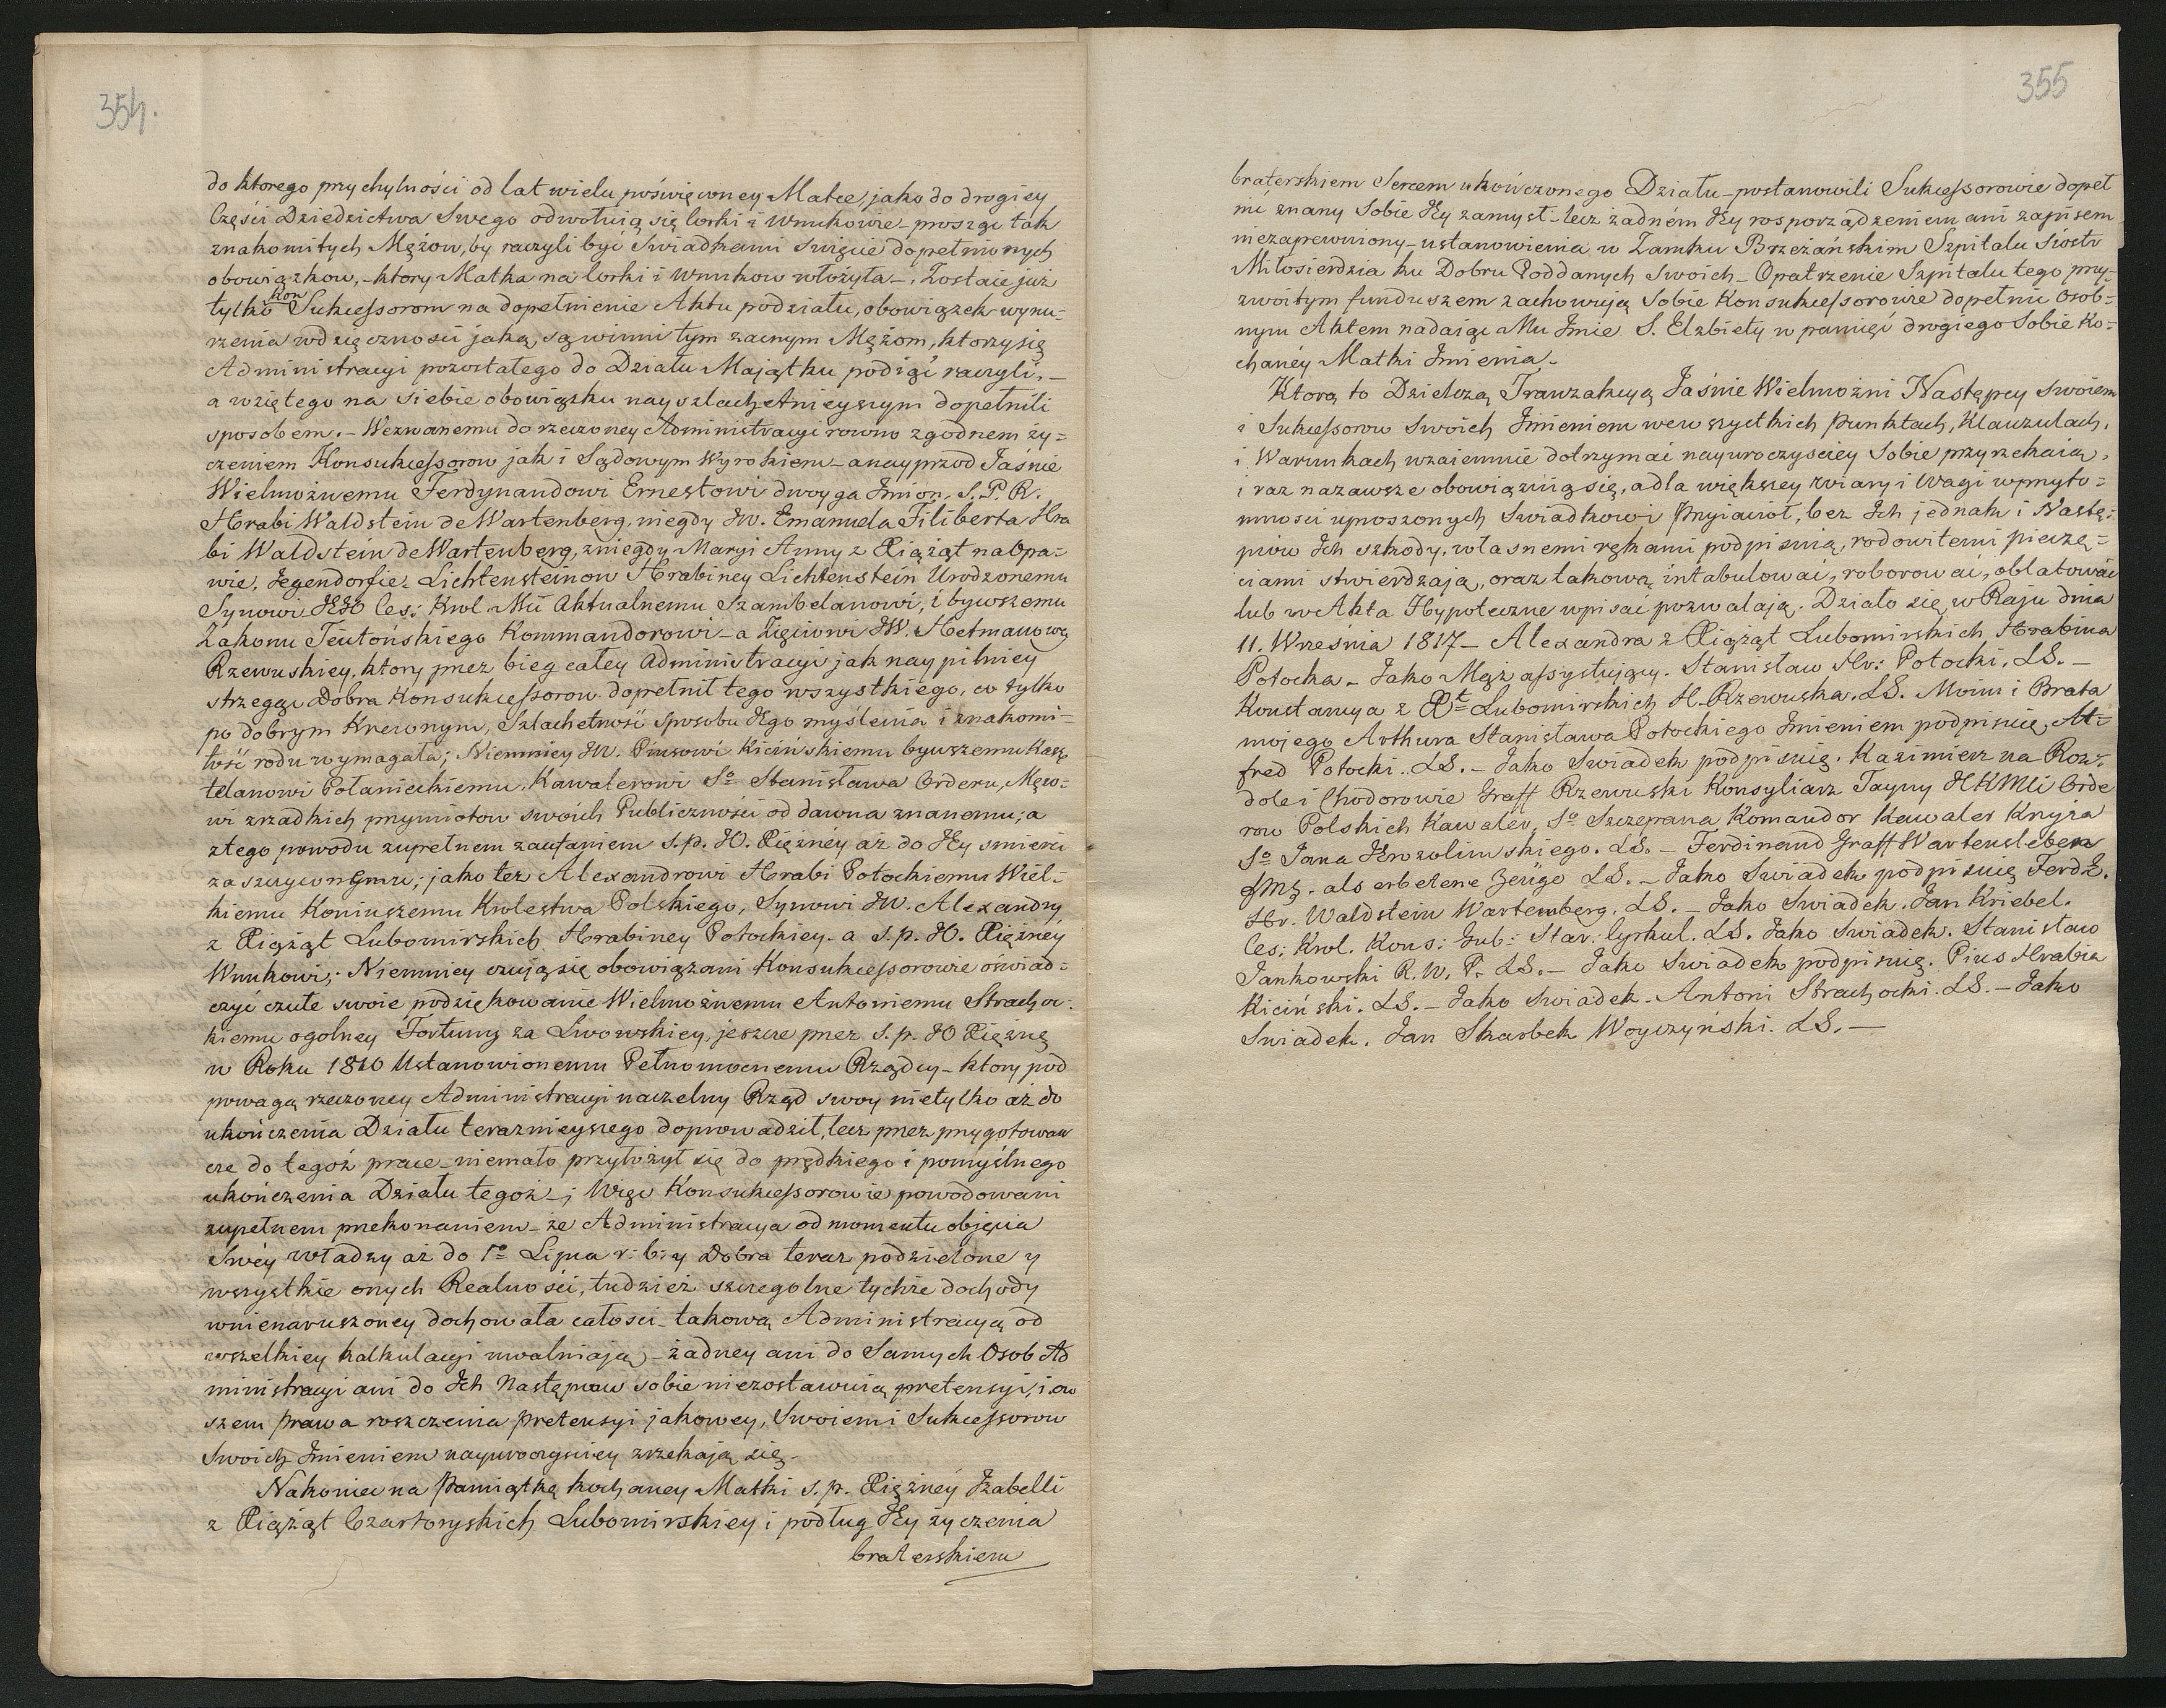 354.
do ktorego przychylności od lat wielu poświęconey Matce, jako do drogiey
Części Dziedzictwa Swego odwołuią się Corki i Wnukowie – prosząc tak
znakomitych Mężow, by raczyli być Swiadkami Swięcie dopełnionych
obowiązkow, – ktory Matka na Corki i Wnukow włożyła –. Zostaie już
tylko Kon Sukcessorom na dopełnienie Aktu podziału, obowiązek wynu=
rzenia wdzięczności jaką są winni tym zacnym Mężom, ktorzy się
Administracyi pozostałego do Działu Maiątku podiąć raczyli, –
a wziętego na siebie obowiązku nayszlachetnieyszym dopełnili
sposobem. – Wezwanemu do rzeczoney Administracyi rowno zgodnem ży=
czeniem Konsukcessorow jak i Sądowym Wyrokiem – a nayprzod Jaśnie
Wielmożnemu Ferdynandowi Ernestowi dwoyga Imion. S. P. R.
Hrabi Waldstein de Wartenberg, niegdy JW. Emanuela Filiberta Hra
bi Waldstein de Wartenberg, z niegdy Maryi Anny z Xiążąt na Opa=
wie, Jegendorfie z Lichtensteinow Hrabiney Lichtenstein Urodzonemu
Synowi JKO Ces: Krol Mći Aktualnemu Szambelanowi, i bywszemu
Zakonu Teutońskiego Kommandorowi – a Zięciowi JW. Hetmanowey
Rzewuskiey, ktory przez bieg całey Administracyi jak naypilniey
strzegąc Dobra Konsukcessorow dopełnił tego wszystkiego, co tylko
po dobrym Krewnym, Szlachetność sposobu Jego myślenia i znakomi=
tość rodu wymagała; Niemniey JW. Piusowi Kicińskiemu bywszemu Kasz
telanowi Połanieckiemu, Kawalerowi So Stanisława Orderu, Mężo=
wi z rzadkich przymiotow swoich Publiczności od dawna znanemu; a
z tego powodu zupełnem zaufaniem s.p. JO. Xiężnéy aż do Jey smierci
zaszczyconemu; jako też Alexandrowi Hrabi Potockiemu Wiel=
kiemu Koniuszemu Krolestwa Polskiego, Synowi JW. Alexandry
z Xiążąt Lubomirskich Hrabiney Potockiey – a s.p. JO. Xiężney
Wnukowi; – Niemniey czują się obowiązani Konsukcessorowie oświad=
czyć czułe swoie podziękowanie Wielmożnemu Antoniemu Strachoc
kiemu ogolney Fortuny za Lwowskiey, jeszcze przez s.p. JO Xiężnę
w Roku 1810 Ustanowionemu Pełnomocnemu Rządcy – ktory pod
powagą rzeczoney Administracyi naczelny Rząd swoy nietylko aż do
ukończenia Działu teraznieyszego doprowadził, lecz przez przygotowaw
cze do tegoż prace – niemało przyłożył się do prędkiego i pomyślnego
ukończenia Działu tegoż –; Więc Konsukcessorowie powodowani
zupełnem przekonaniem – że Administracya od momentu objęcia
Swéy władzy aż do 1o Lipca r: b: y Dobra teraz podzielone y
wszystkie onych Realności, tudzież szczegolne tychże dochody
w nienaruszoney dochowała całości – takową Administracyą od
wszelkiey kalkulacyi uwalniają – żadney ani do Samych Osob Ad
ministracyi ani do Ich Następcow sobie niezostawuią pretensyi, i ow
szem prawa roszczenia pretensyi jakowey, Swoiem i Sukcessorow
Swoich Imieniem nayuroczyściey zrzekają się. –
Nakoniec na Pamiątkę kochaney Matki s.p. Xiężnéy Izabelli
z Xiążąt Czartoryskich Lubomirskiey i podług Jey życzenia
braterskiem
355
braterskiem Sercem ukończonego Działu – postanowili Sukcessorowie dopeł
nić znany Sobie Jey zamysł – lecz żadném Jey rosporządzeniem ani zapisem
niezapewniony – ustanowienia w Zamku Brzeżańskim Szpitalu Siostr
Miłosierdzia ku Dobru Poddanych Swoich – Opatrzenie Szpitalu tego przy=
zwoitym funduszem zachowują Sobie Konsukcessorowie dopełnić osob=
nym Aktem nadaiąc Mu Imie S. Elzbiety w pamięć drogiego Sobie Ko=
chanéy Matki Imienia. –
Ktorą to Dzielczą Tranzakcyą Jaśnie Wielmożni Następcy Swoiem
i Sukcessorow Swoich Imieniem we wszystkich Punktach, Klauzulach,
i Warunkach wzaiemnie dotrzymać nayuroczyściey Sobie przyrzekaią,
i raz na zawsze obowiązuią się, a dla większey wiary i Wagi w przyto=
mności uproszonych Swiadkow i Przyiacioł, bez Ich jednak i Nastę=
pcow Ich szkody, własnemi rękami podpisuią, rodowitemi pieczę=
ciami stwierdzają, oraz takową intabulować, roborować, oblatować
lub w Akta Hypoteczne wpisać pozwalają. Działo się w Raju dnia
11. Września 1817 – Alexandra z Xiążąt Lubomirskich Hrabina
Potocka – Jako Mąż assystujący. Stanisław Hr: Potocki. LS. –
Konstancya z Xt Lubomirskich H. Rzewuska. LS. Moim i Brata
mojego Arthura Stanisława Potockiego Imieniem podpisuię, Al=
fred Potocki. LS. – Jako Swiadek podpisuię. Kazimierz na Roz=
dole i Chodorowie Graff Rzewuski Konsyliarz Tayny JKMći Orde
row Polskich Kawaler, So Szczepana Komandor Kawaler Krzyża
So Jana Jerozolimskiego. LS. – Ferdinand Graff Wartensleben
FML. als erbetene Zeuge LS. – Jako Swiadek podpisuię Ferd: E.
Hr. Waldstein Wartemberg. LS. – Jako Swiadek. Jan Kriebel.
Ces: Krol. Kons: Gub: Star: Cyrkul. LS. Jako Swiadek. Stanisław
Jankowski R. W. P. LS. – Jako Swiadek podpisuię. Pius Hrabia
Kiciński. LS. – Jako Swiadek – Antoni Strachocki. LS. – Jako
Swiadek. Jan Skarbek Woyczyński. LS. –